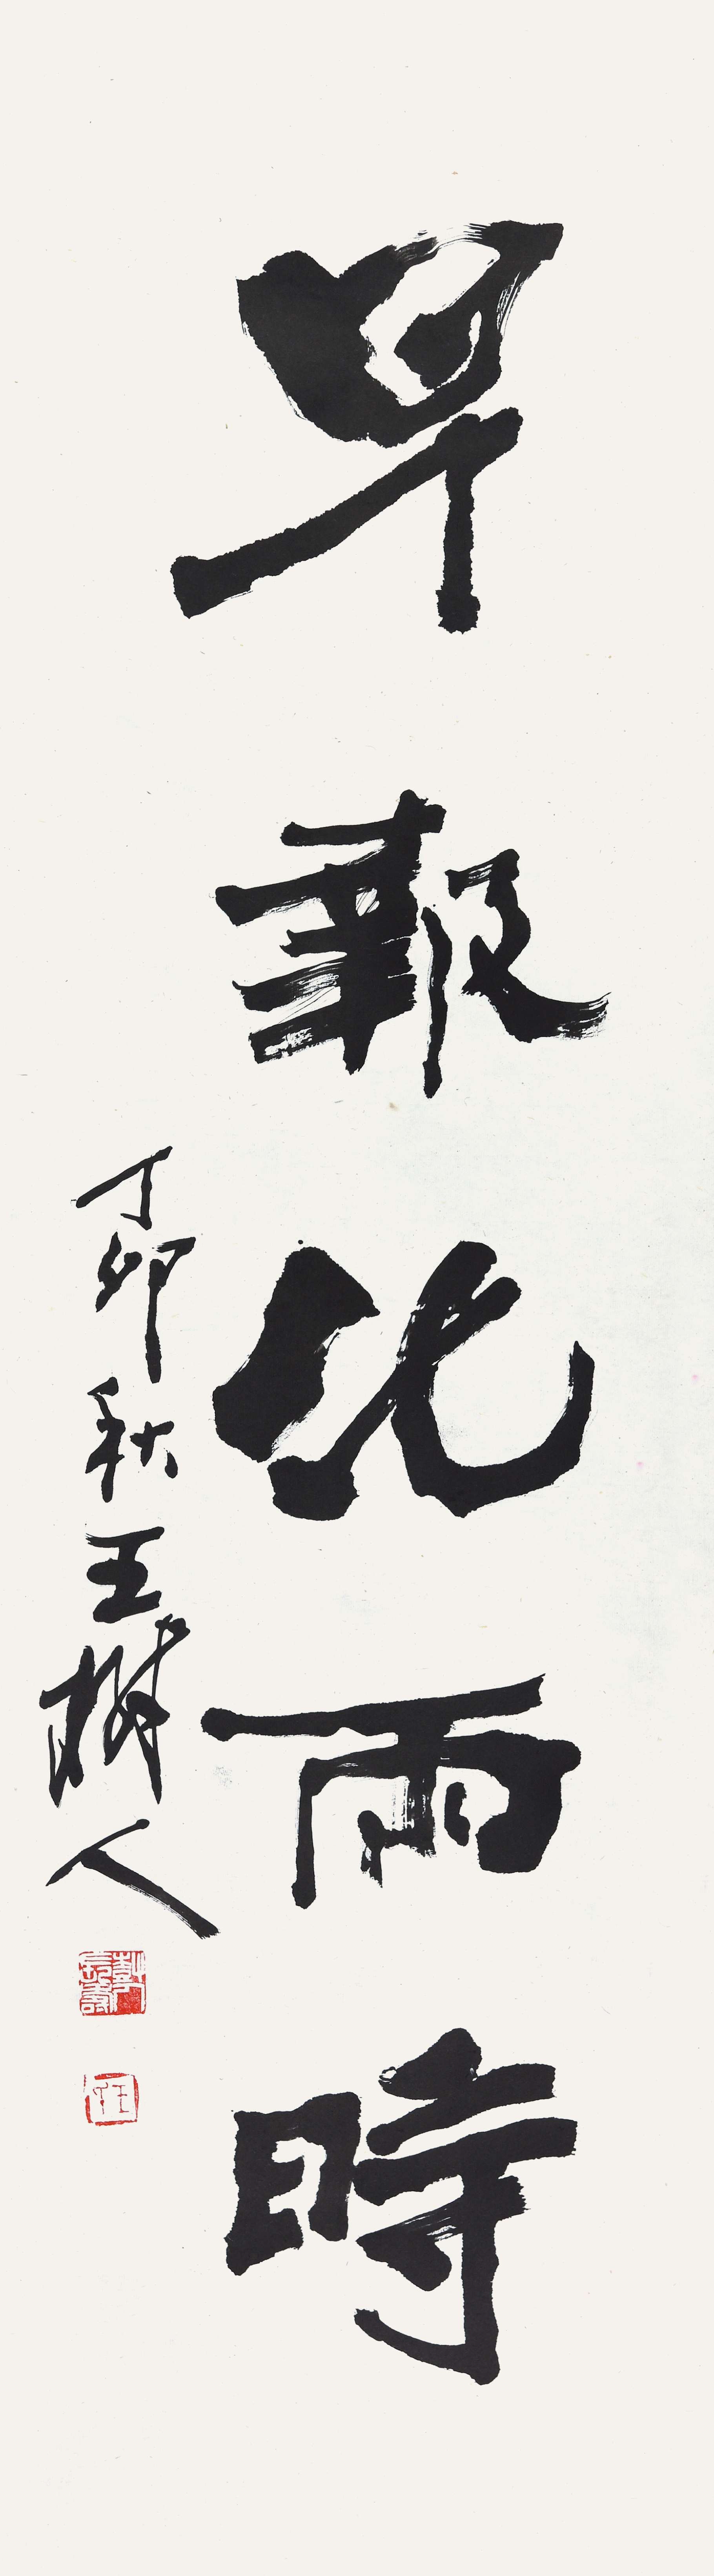 早報化雨時
丁卯秋王樹人